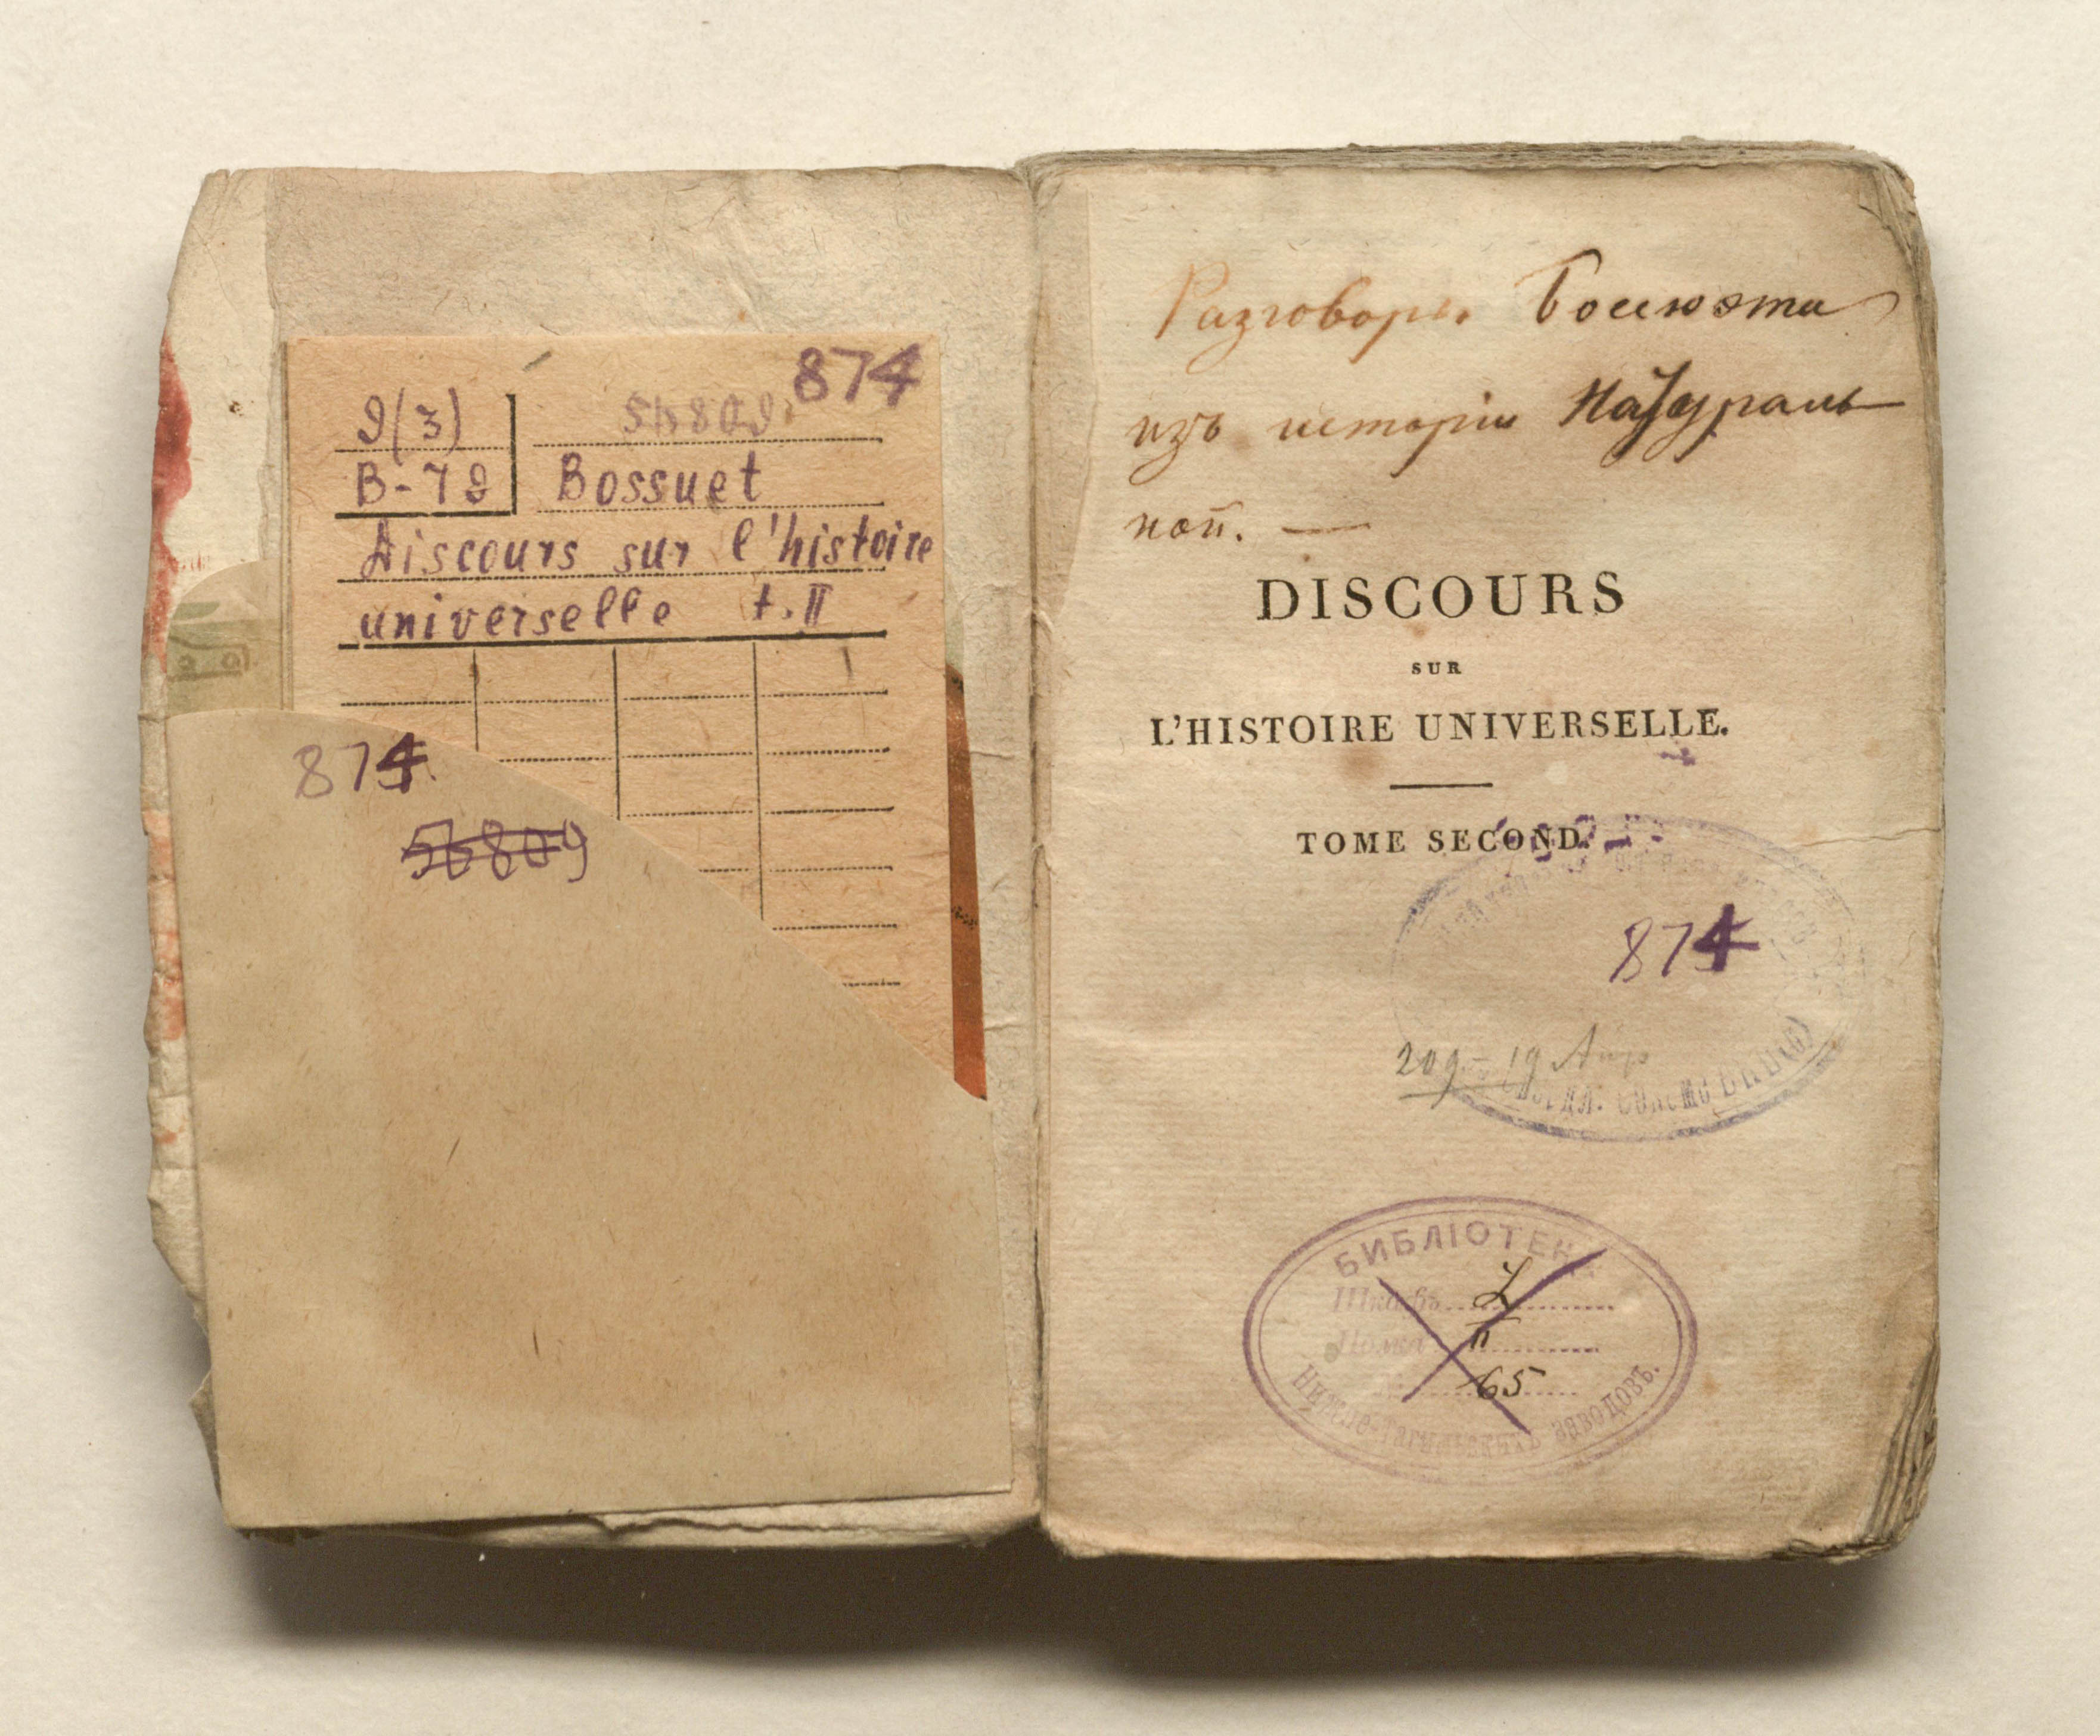 874
9(3)
56809
B-79
Bossuet
Discours sur l'histoire
universelle t. II
874
56809
Разговоры Боссюэта
изъ исторіи Натураль
ной. —
DISCOURS
SUR
L'HISTOIRE UNIVERSELLE.
TOME SECOND.
874
209 - 19
ВКП(б)
БИБЛІОТЕКА
Шкафъ L
Полка II
65
Нижне-Тагильскихъ заводовъ.